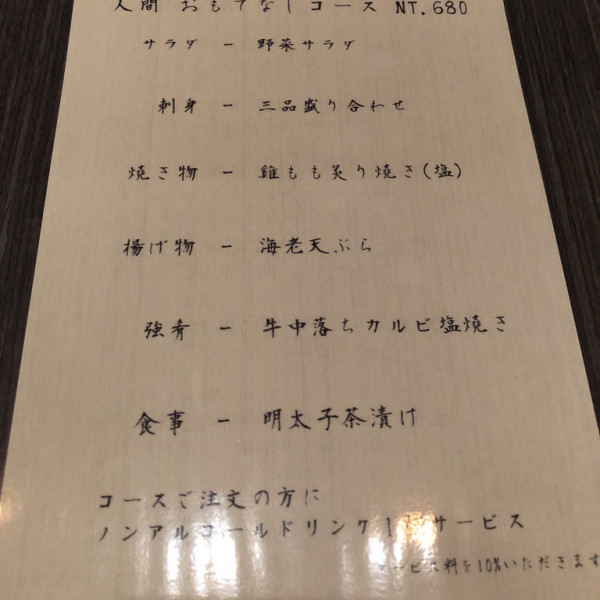 人間 おもてなしコース NT.680
サラダ - 野菜サラダ
刺身 - 三品盛り合わせ
焼き物 - 鶏もも炙り焼き(塩)
揚げ物 - 海老天ぷら
強肴 - 牛中落ちカルビ塩焼き
食事 - 明太子茶漬け
コースご注文の方に
ノンアルコールドリンク1 サービス
サービス料を10%いただきます